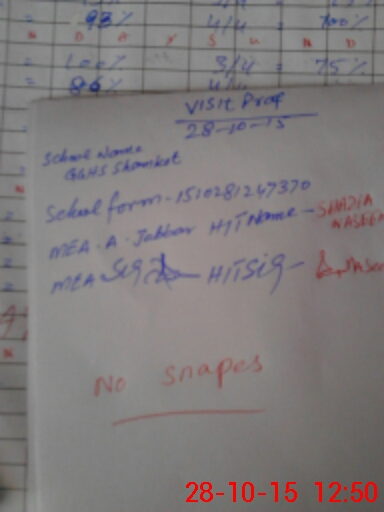 93% 4/4 100%
N D A Y S U N D
= 100% 3/4 = 75%
= 86% 4/4
VISIT Prof
28-10-15
School Name
GGHS Shamkot
School form - 1510281247370
MEA. A. Jabbar H/T Name - SHAZIA
MEA Sig H/T Sig -
No snapes
28-10-15 12:50